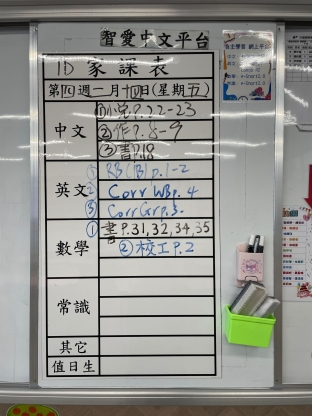 智愛中文平台
1D 家課表
第四週一月十四日(星期五)
中文
①小兌P.22-23
②作P.8-9
③書P.18
英文
① RB(B)p.1-2
② Corr WB p.4
③ Corr Gr p.3.
數學
① 書P.31,32,34,35
② 校工P.2
常識
其它
值日生